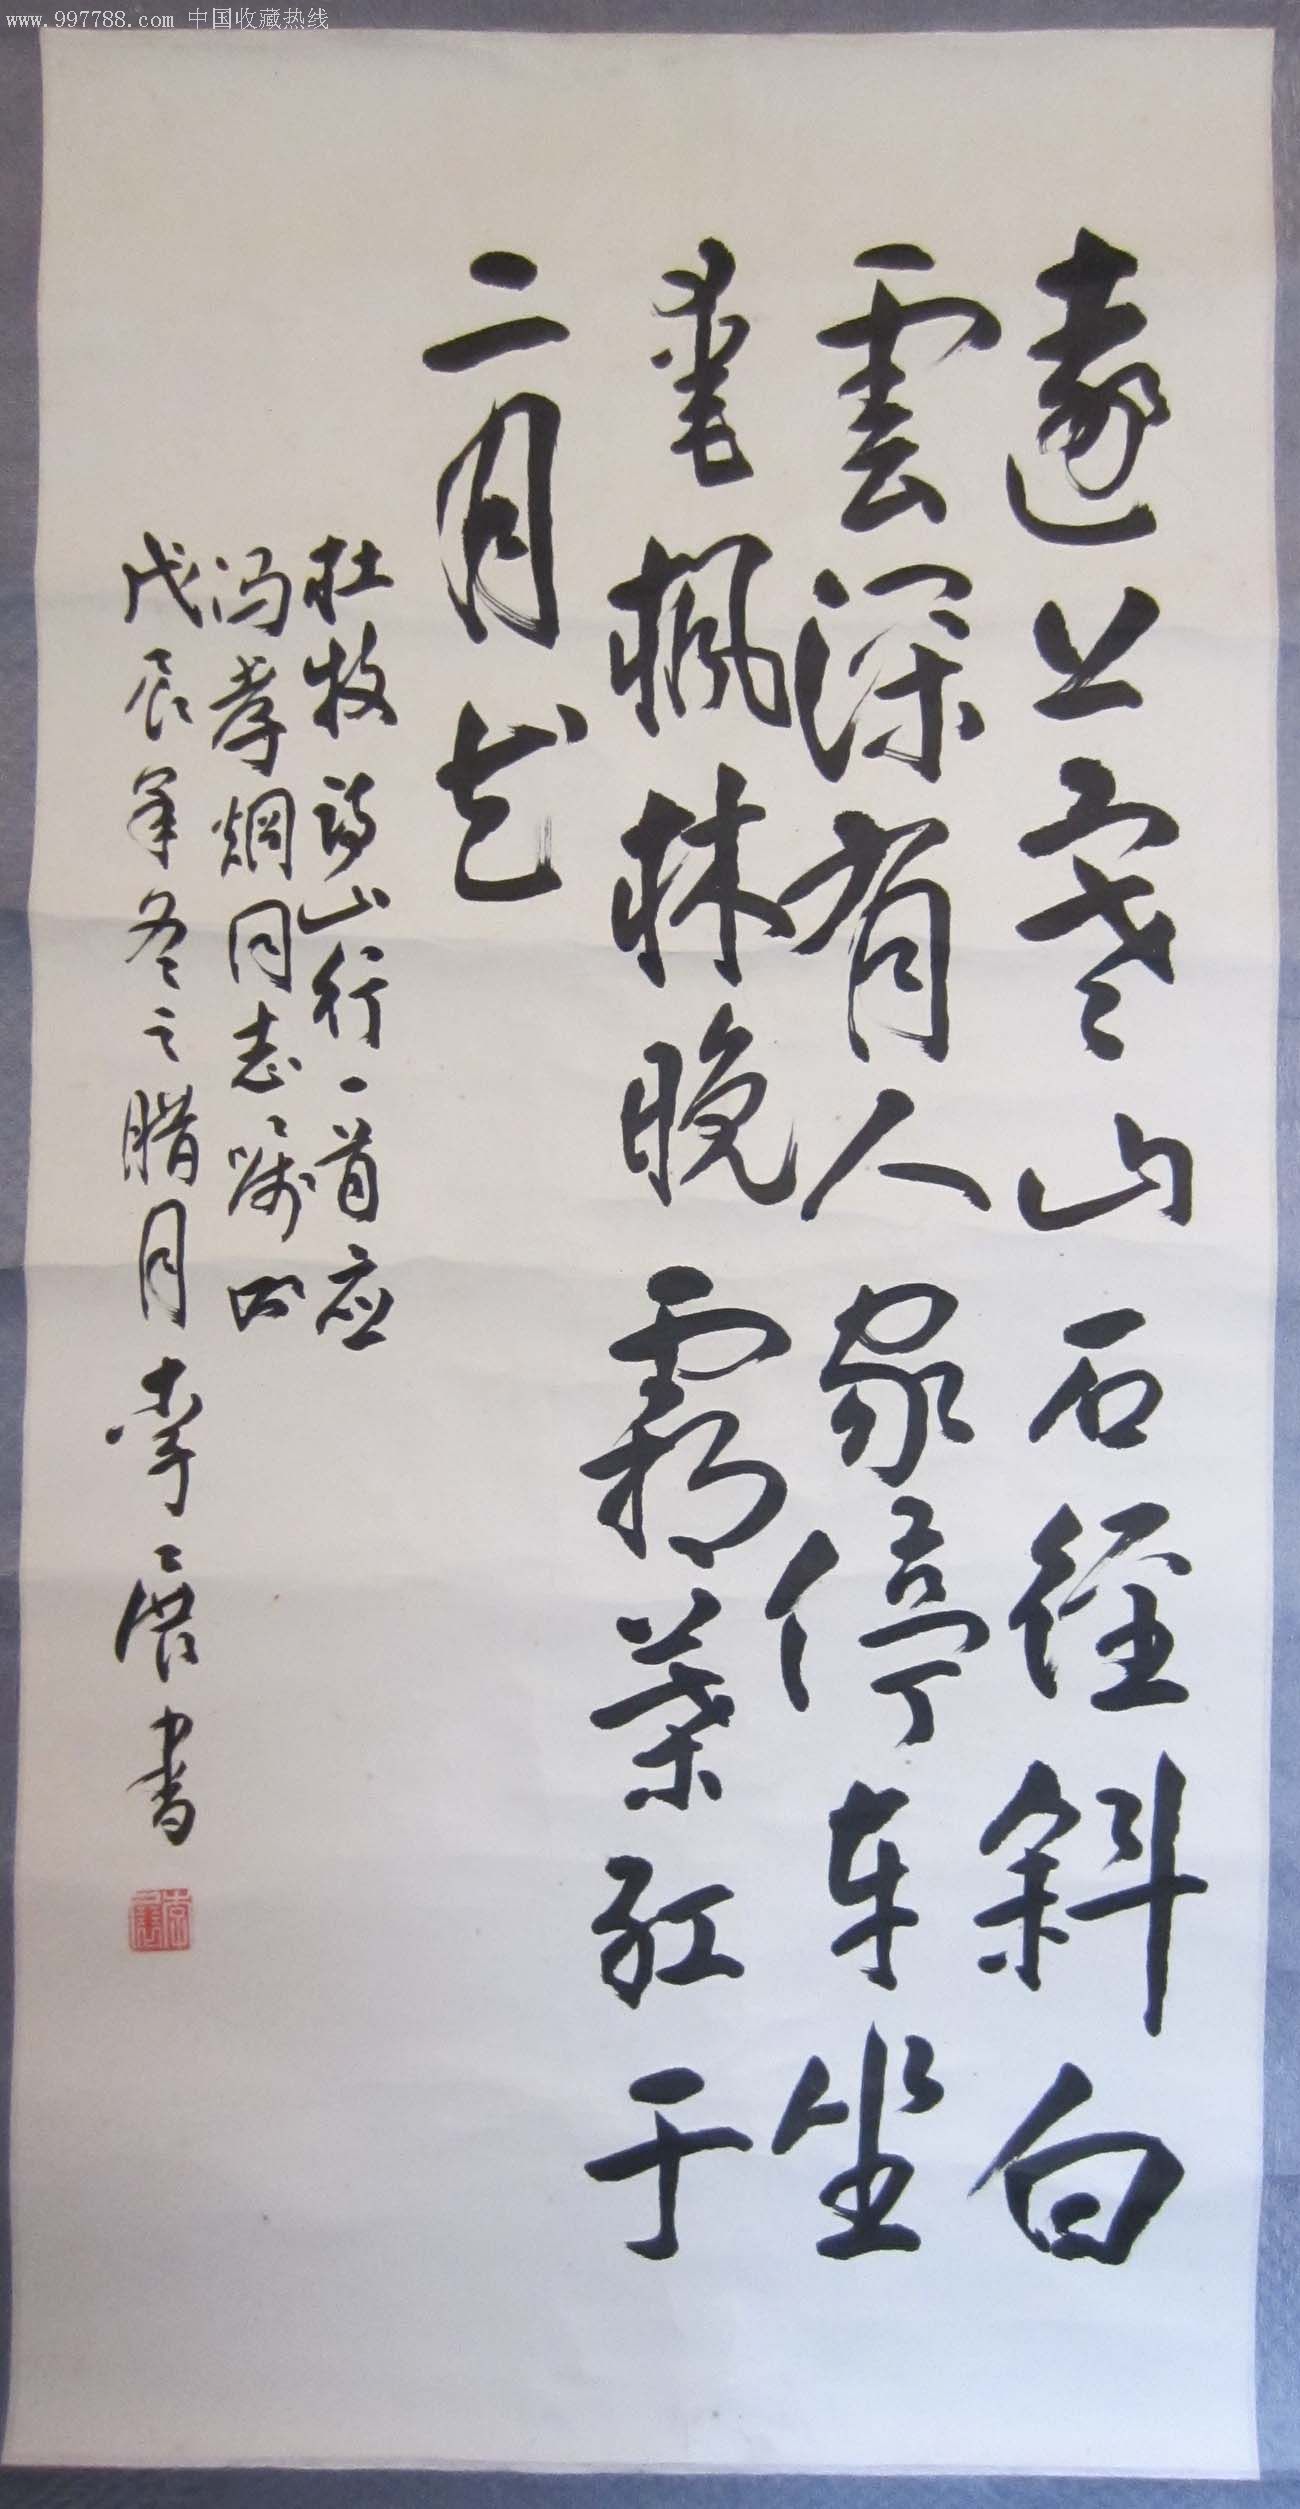 www.997788.com 中国收藏热线
遠上寒山石徑斜白
雲深有人家停车坐
愛枫林晚霜葉红于
二月花
杜牧诗山行一首应
冯孝炯同志嘱
戊辰年冬之腊月李展书